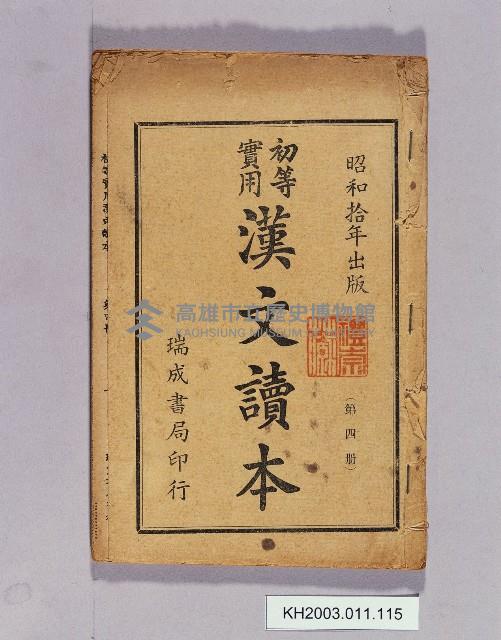 昭和拾年出版
(第四册)
初等
實用
漢文讀本
瑞成書局印行
高雄市立歷史博物館
KAOHSIUNG MUSEUM OF HISTORY
KH2003.011.115